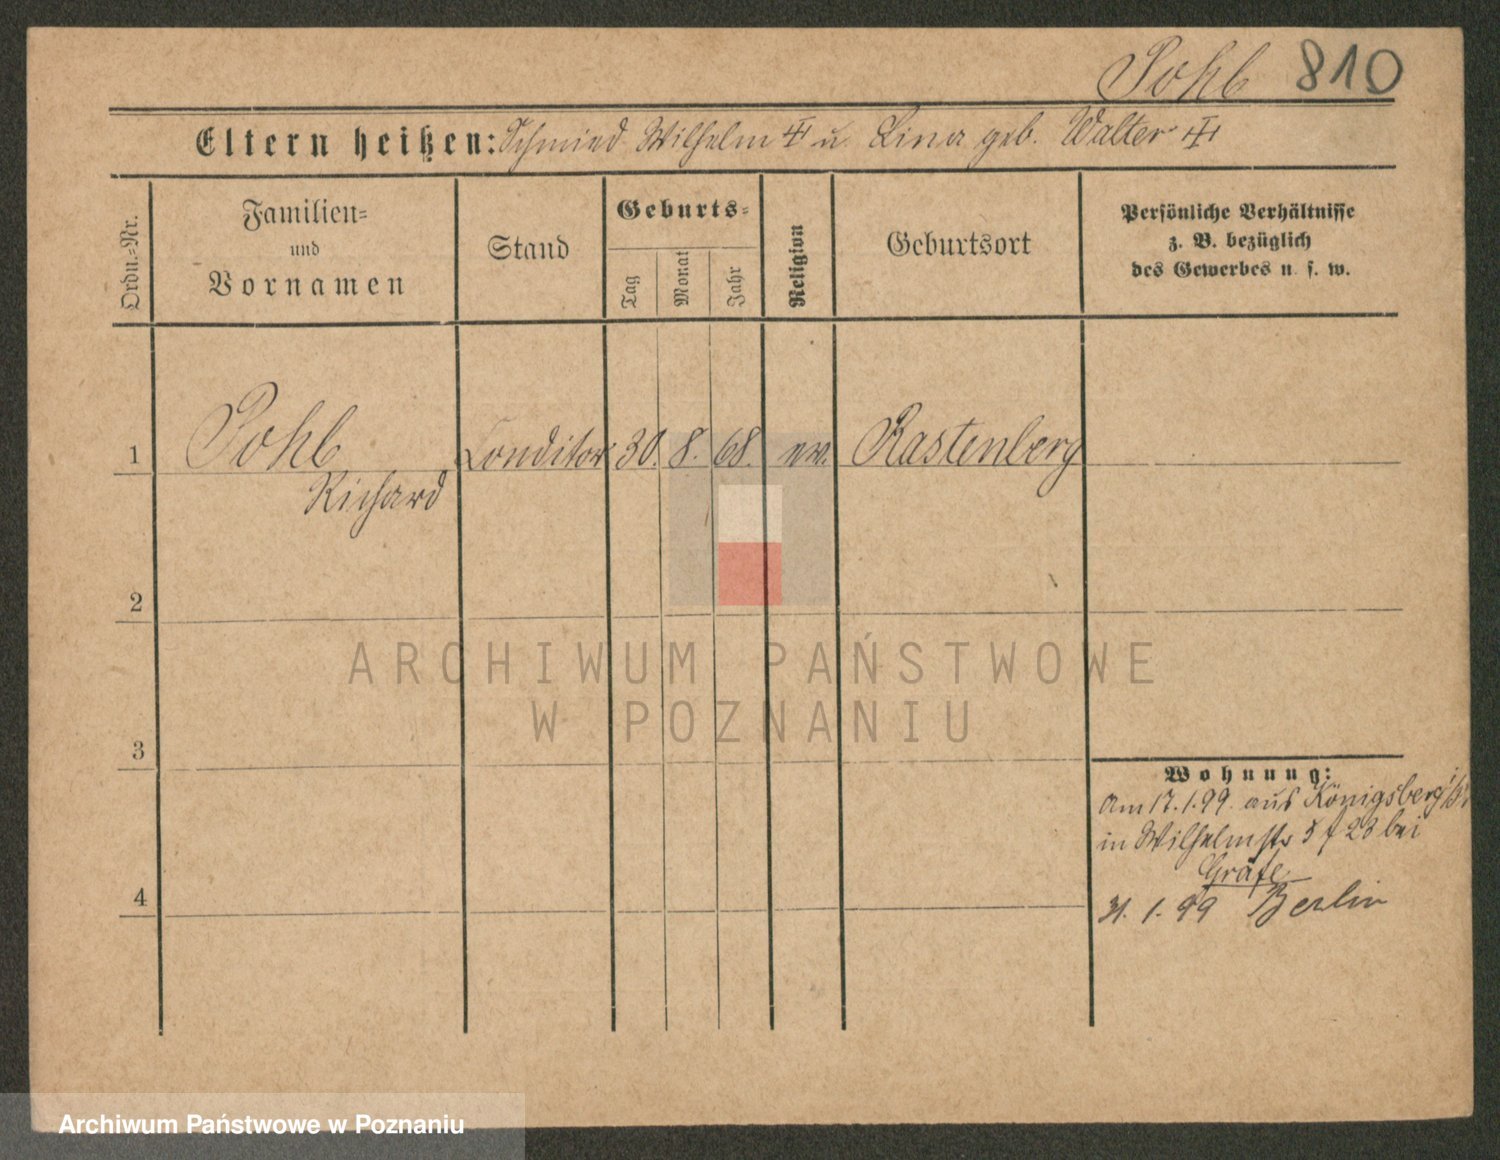 Pohl 810
Eltern heißen: Schmied Wilhelm u. Lina geb. Walter
Ordn.=Nr.
Familien=
und
Vornamen
Stand
Geburts=
Tag
Monat
Jahr
Religion
Geburtsort
Persönliche Verhältnisse
z. B. bezüglich
des Gewerbes u. s. w.
1 Pohl Conditor 30. 8. 68. ev. Rastenberg
Richard
2
ARCHIWUM PAŃSTWOWE
W POZNANIU
3
Wohnung:
Am 17.1.99. aus Königsberg i/Pr
in Wilhelmstr 23 bei
Gräfe
31. 1. 99 Berlin
4
Archiwum Państwowe w Poznaniu